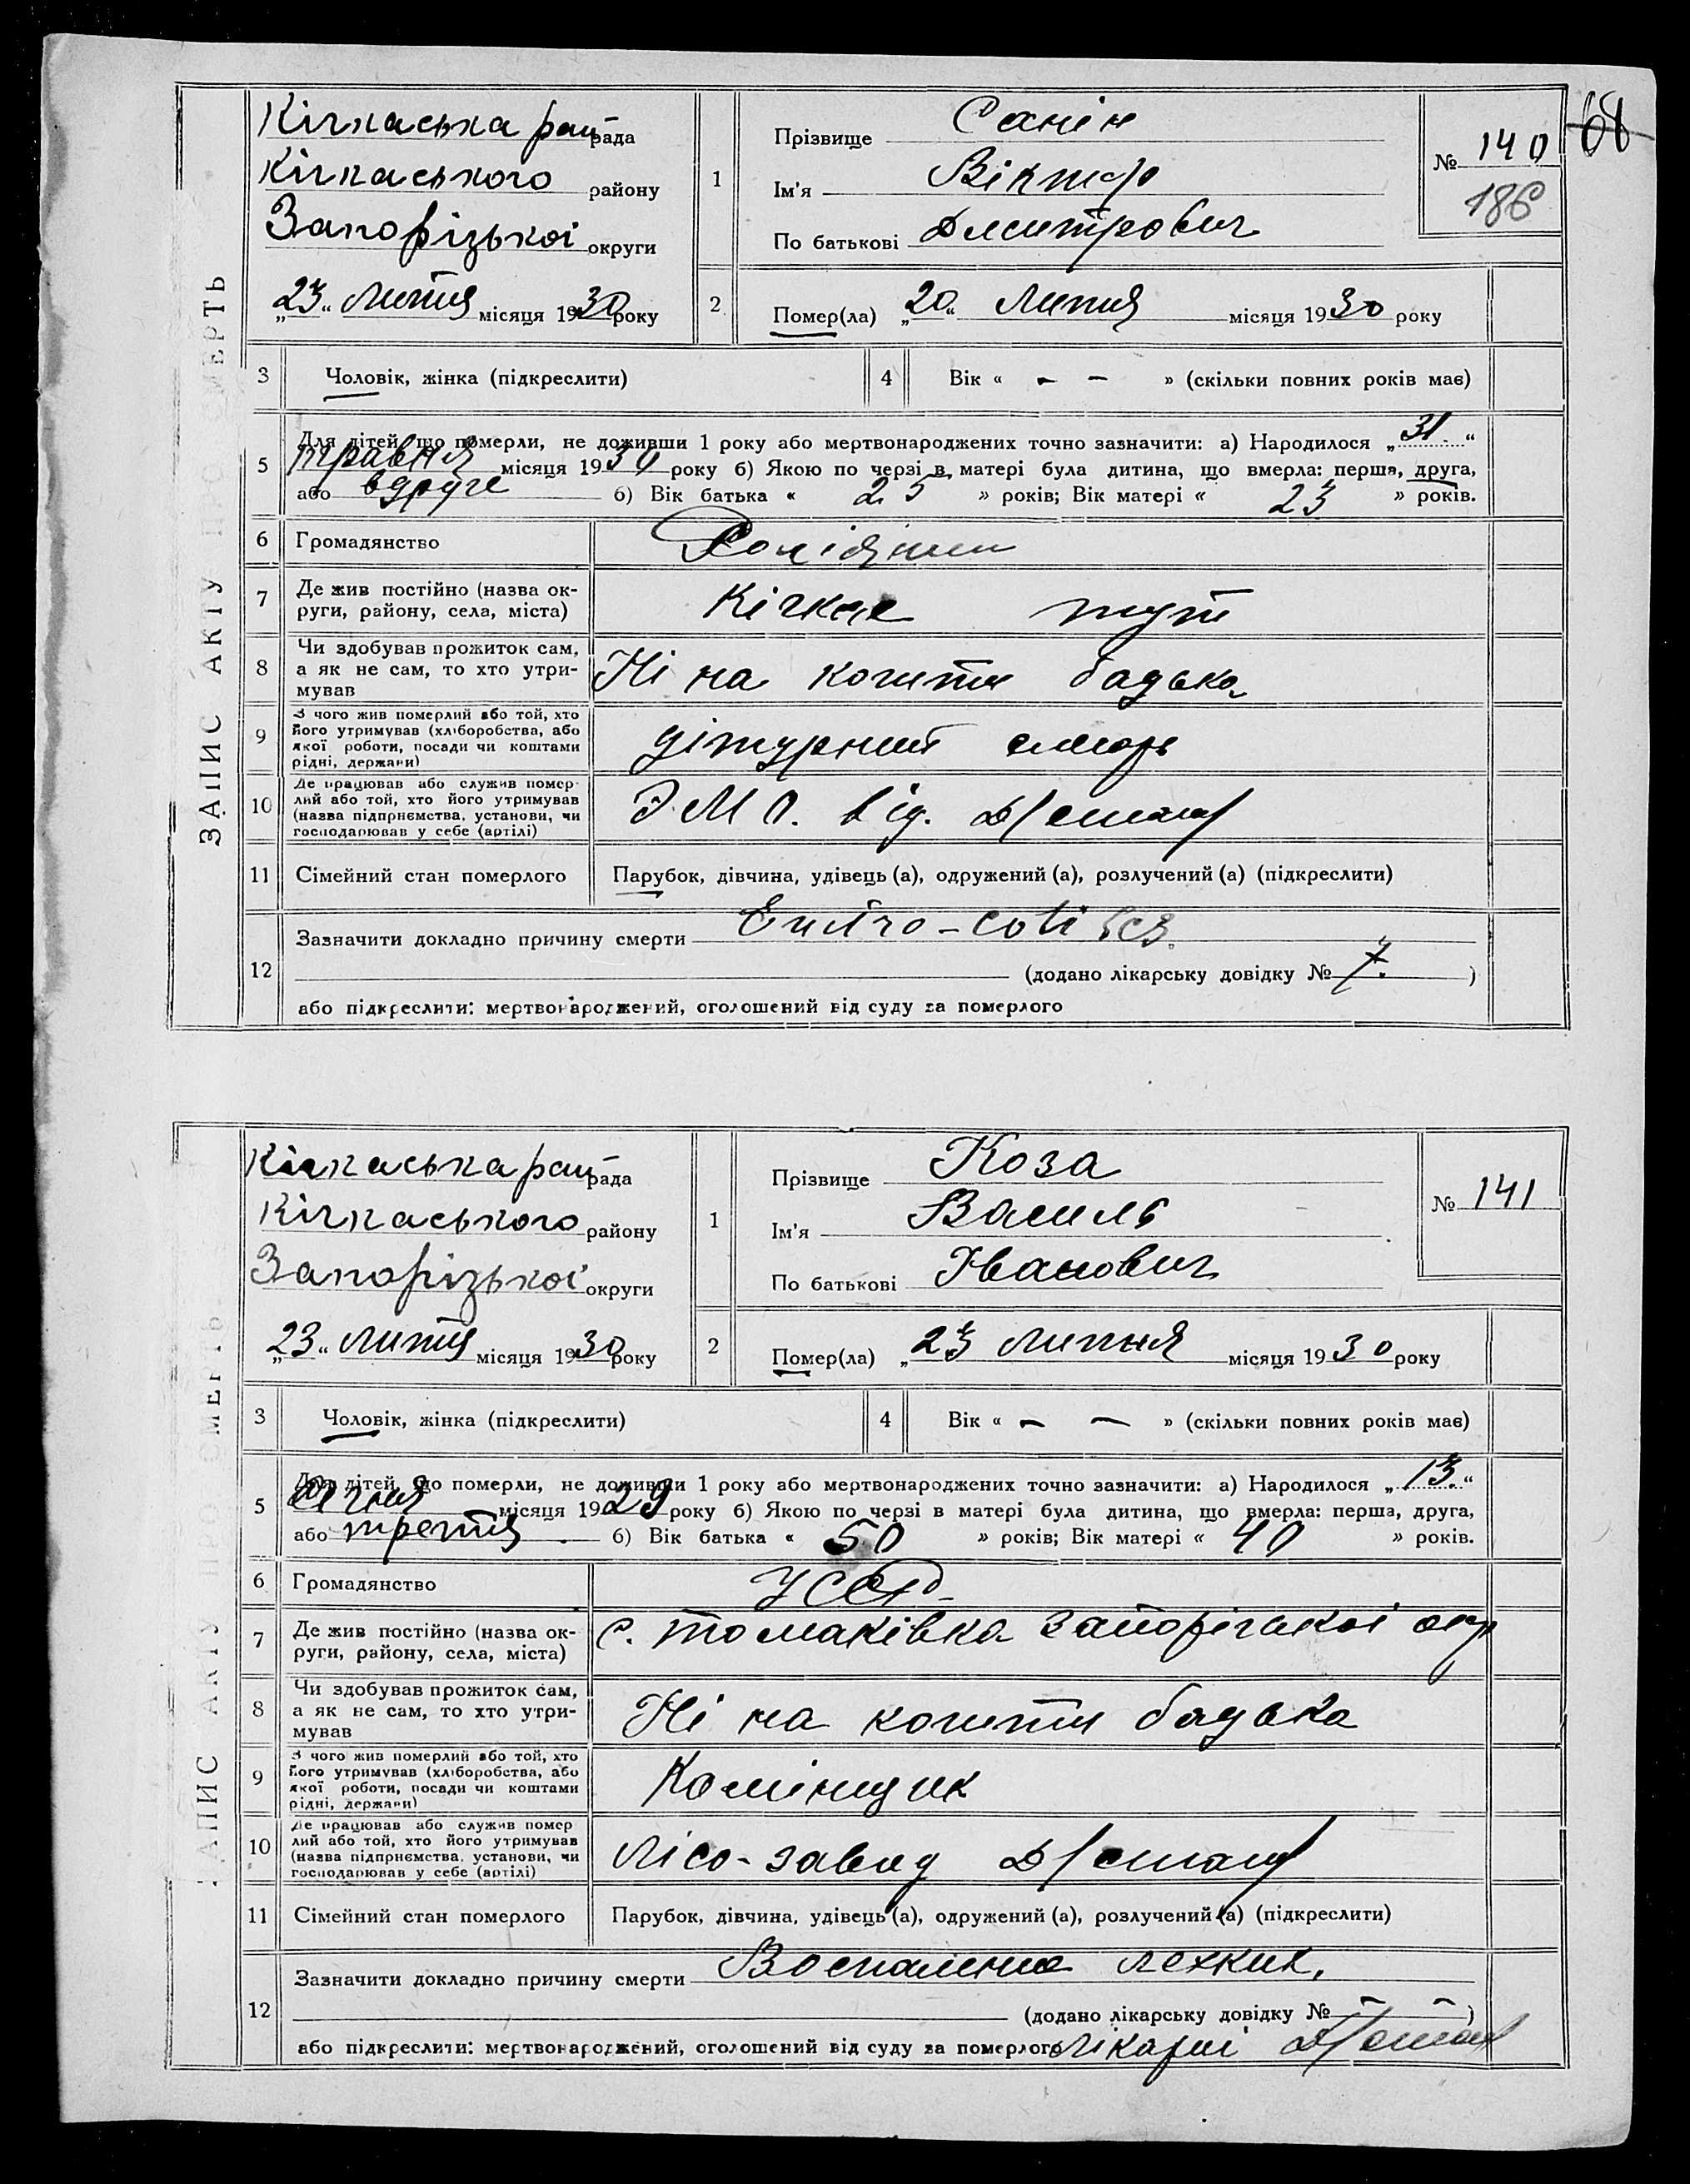 ЗАПИС АКТУ ПРО СМЕРТЬ
Кічкаська рай рада
Кічкаського району
Запорізької округи
„23“ Липня місяця 1930 року
1
Прізвище Санін
Ім'я Віктор
По батькові Дмитрович
№ 140
186
68
2
Помер(ла) „20“ Липня місяця 1930 року
3 Чоловік, жінка (підкреслити)
4 Вік « – – » (скільки повних років має)
5 Для дітей, що померли, не доживши 1 року або мертвонароджених точно зазначити: а) Народилося „31“
травня місяця 1930 року б) Якою по черзі в матері була дитина, що вмерла: перша, друга,
або вдруге б) Вік батька « 25 » років; Вік матері « 23 » років.
6 Громадянство
7 Де жив постійно (назва ок-
руги, району, села, міста) Кічкас тут
8 Чи здобував прожиток сам,
а як не сам, то хто утри-
мував Ні на кошти батька
9 З чого жив померлий або той, хто
його утримував (хліборобства, або
якої роботи, посади чи коштами
рідні, держави)
10 Де працював або служив помер-
лий або той, хто його утримував
(назва підприємства, установи, чи
господарював у себе (артілі) від.
11 Сімейний стан померлого Парубок, дівчина, удівець (а), одружений (а), розлучений (а) (підкреслити)
12 Зазначити докладно причину смерти
(додано лікарську довідку № 7. )
або підкреслити: мертвонароджений, оголошений від суду за померлого
ЗАПИС АКТУ ПРО СМЕРТЬ
Кічкаська рай рада
Кічкаського району
Запорізької округи
„23“ Липня місяця 1930 року
1
Прізвище Коза
Ім'я Василь
По батькові Іванович
№ 141
2
Помер(ла) „23 Липня місяця 1930 року
3 Чоловік, жінка (підкреслити)
4 Вік « – – » (скільки повних років має)
5 Для дітей, що померли, не доживши 1 року або мертвонароджених точно зазначити: а) Народилося „13.“
місяця 1929 року б) Якою по черзі в матері була дитина, що вмерла: перша, друга,
або третя б) Вік батька « 50 » років; Вік матері « 40 » років.
6 Громадянство УССР
7 Де жив постійно (назва ок-
руги, району, села, міста) с. Томаківка Запорізької окр
8 Чи здобував прожиток сам,
а як не сам, то хто утри-
мував Ні на кошти батька
9 З чого жив померлий або той, хто
його утримував (хліборобства, або
якої роботи, посади чи коштами
рідні, держави) Камінщик
10 Де працював або служив помер
лий або той, хто його утримував
(назва підприємства, установи, чи
господарював у себе (артілі) Лісо-завод
11 Сімейний стан померлого Парубок, дівчина, удівець (а), одружений (а), розлучений (а) (підкреслити)
12 Зазначити докладно причину смерти Воспаление легких.
(додано лікарську довідку № – – )
або підкреслити: мертвонароджений, оголошений від суду за померлого Лікарні